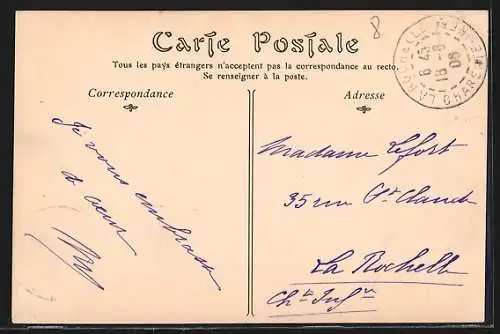 8
Carte Postale
Tous les pays étrangers n'acceptent pas la correspondance au recto.
Se renseigner à la poste.
Correspondance
Adresse
LA ROCHELLE
6 45
18 - 8
08
Je vous embrasse
de cœur
Madame Lefort
35 rue St Claude
La Rochelle
Ch.te Infre